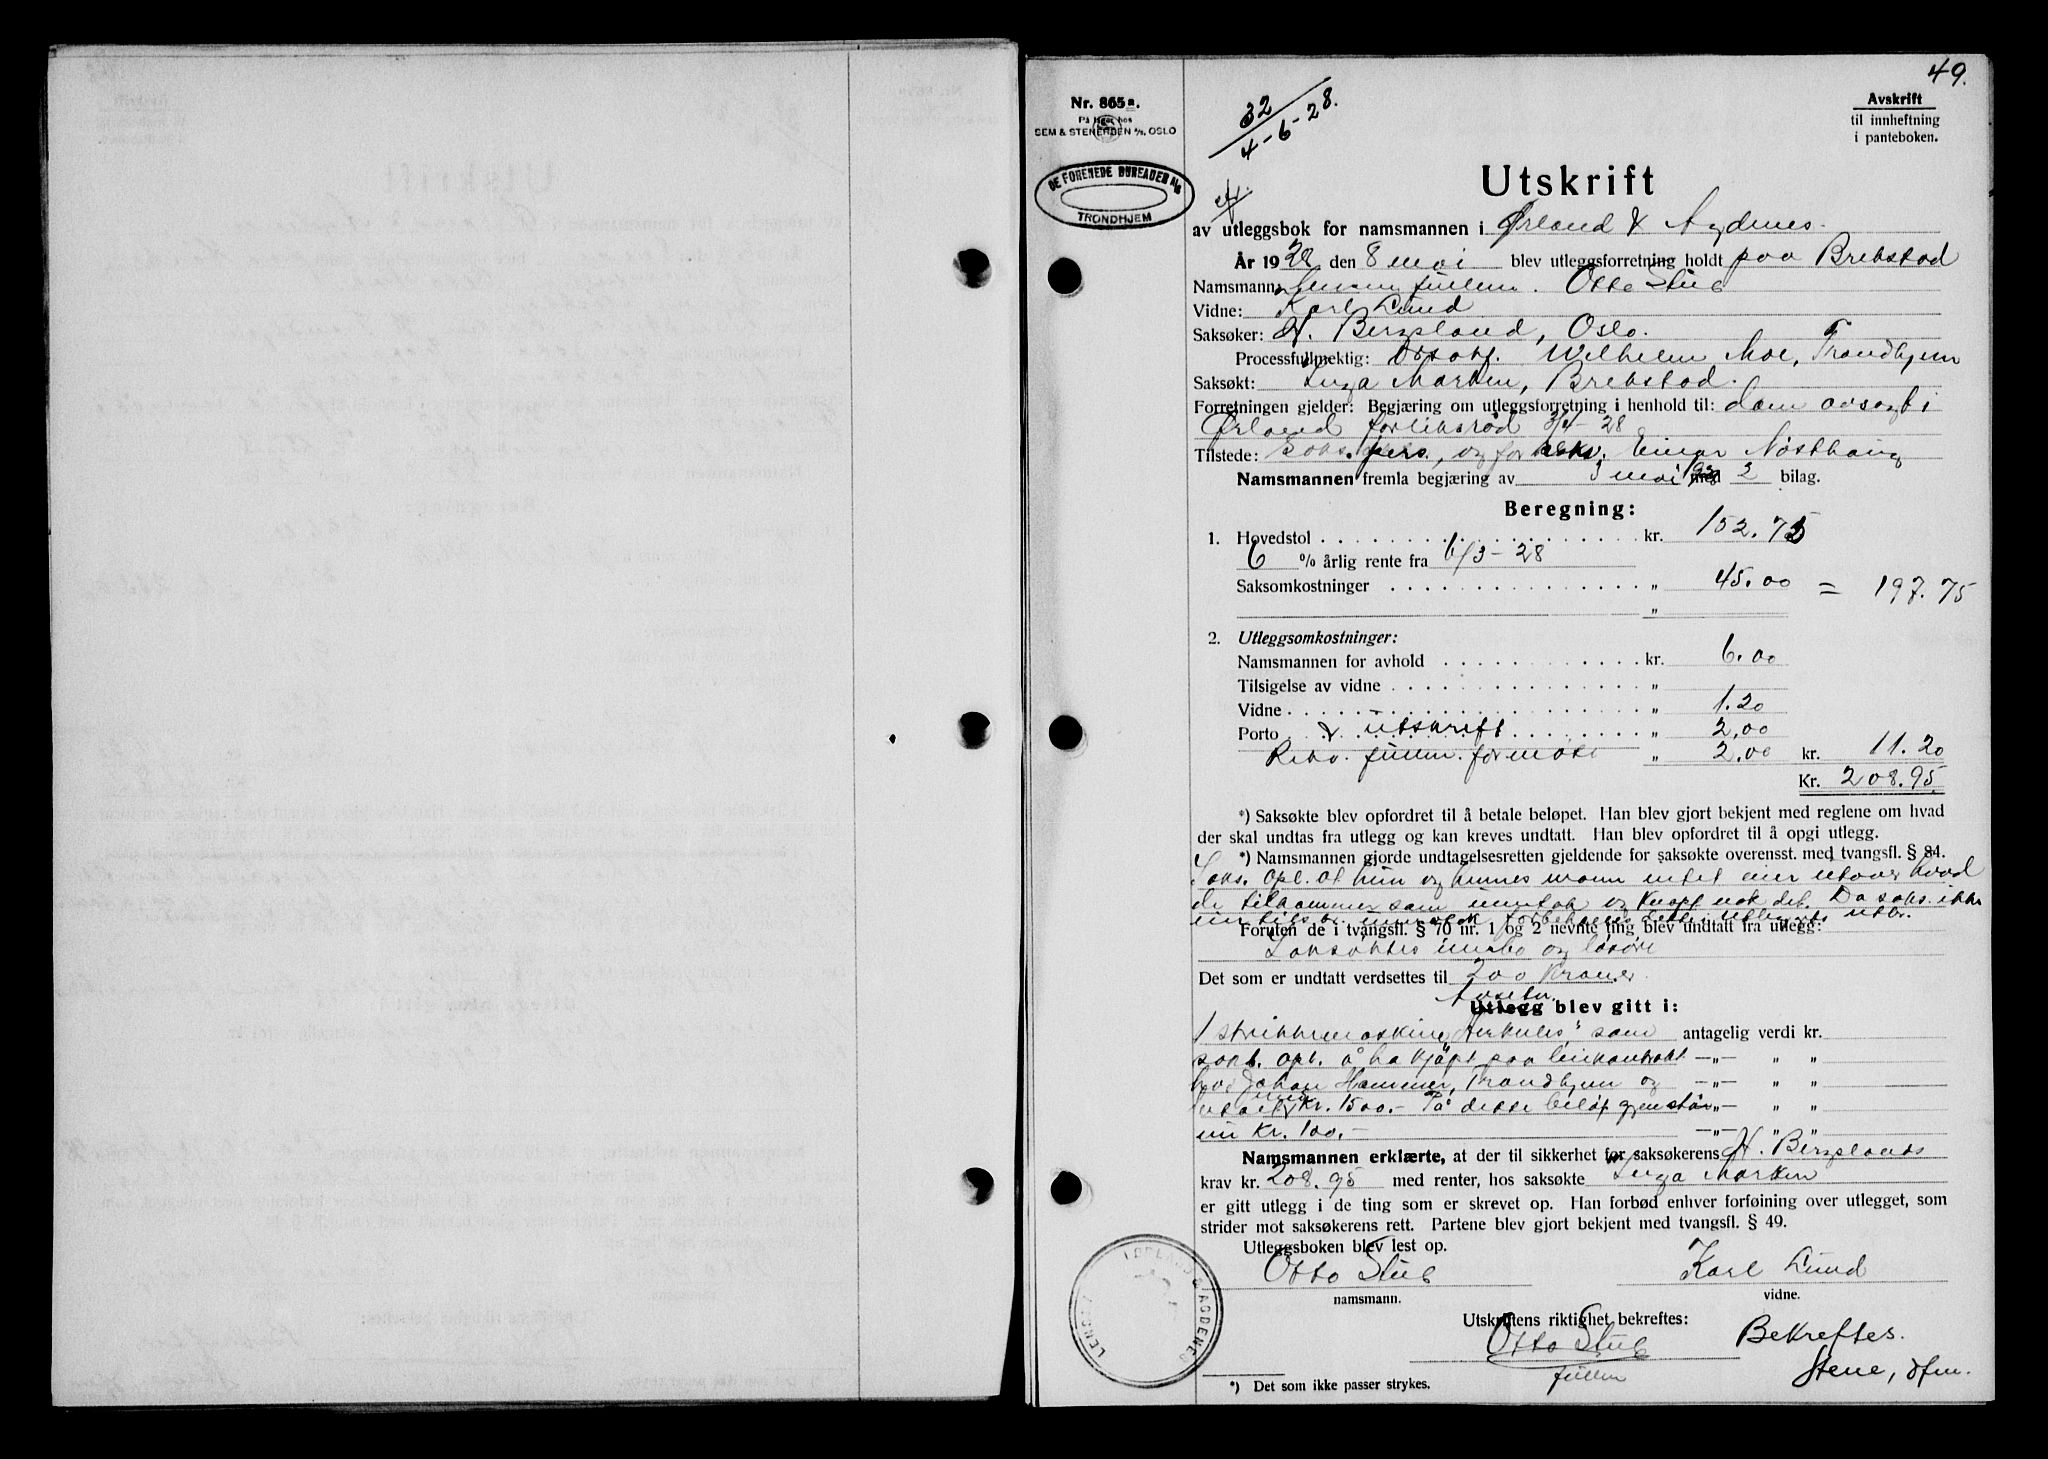 49.
Nr. 865a.
På lager hos
SEM & STENERSEN A/S, OSLO
32
4-6-28.
Avskrift
til innheftning
i panteboken.
DE FORENEDE BUREAUER A/S
TRONDHJEM
Utskrift
av utleggsbok for namsmannen i Ørland & Agdenes.
År 1928 den 8 mai blev utleggsforretning holdt paa Brekstad
Namsmann: fullm. Otto Stub
Vidne: Karl Lund
Saksøker: H. Bergsland, Oslo.
Processfullmektig: O.r.sakf. Wilhelm Moe, Trondhjem
Saksøkt: Inga Marken, Brekstad.
Forretningen gjelder: Begjæring om utleggsforretning i henhold til: dom avsagt i
Ørland forliksråd 3/4-28
Tilstede: Saks. pers., og for saks. Einar Nøsthaug
Namsmannen fremla begjæring av 3 mai med 2 bilag.
Beregning:
1. Hovedstol kr. 152.75
6 % årlig rente fra 6/3-28
Saksomkostninger " 45.00 = 197.75
"
2. Utleggsomkostninger:
Namsmannen for avhold kr. 6.00
Tilsigelse av vidne "
Vidne " 1.20
Porto & utskrift " 2.00
Rekv. fullm. for møte " 2.00 kr. 11.20
Kr. 208.95
*) Saksøkte blev opfordret til å betale beløpet. Han blev gjort bekjent med reglene om hvad
der skal undtas fra utlegg og kan kreves undtatt. Han blev opfordret til å opgi utlegg.
*) Namsmannen gjorde undtagelsesretten gjeldende for saksøkte overensst. med tvangsfl. § 84.
Saks. opl. at hun og hennes mann intet eier utover hvad
de tilkommer som unntak og knapt nok det. Da saks. ikke
Foruten de i tvangsfl. § 70 nr. 1 og 2 nevnte ting blev undtatt fra utlegg:
Saksøktes innbo og løsøre
Det som er undtatt verdsettes til 200 Kroner.
Utlegg blev gitt i:
1 strikkemaskin "Herkules" som antagelig verdi kr.
saks. opl. å ha kjøpt paa leiekontrakt —„— " "
hos Johan Hammer, Trondhjem og —„— " "
kr. 1500.- På dette beløp gjenstår —„— " "
nu kr. 100.- —„— " "
Namsmannen erklærte, at der til sikkerhet for saksøkerens H. Bergslands
krav kr. 208.95 med renter, hos saksøkte Inga Marken
er gitt utlegg i de ting som er skrevet op. Han forbød enhver forføining over utlegget, som
strider mot saksøkerens rett. Partene blev gjort bekjent med tvangsfl. § 49.
Utleggsboken blev lest op.
Otto Stub Karl Lund
namsmann. vidne.
Utskriftens riktighet bekreftes:
Otto Stub Bekreftes.
fullm Stene, dfm.
*) Det som ikke passer strykes.